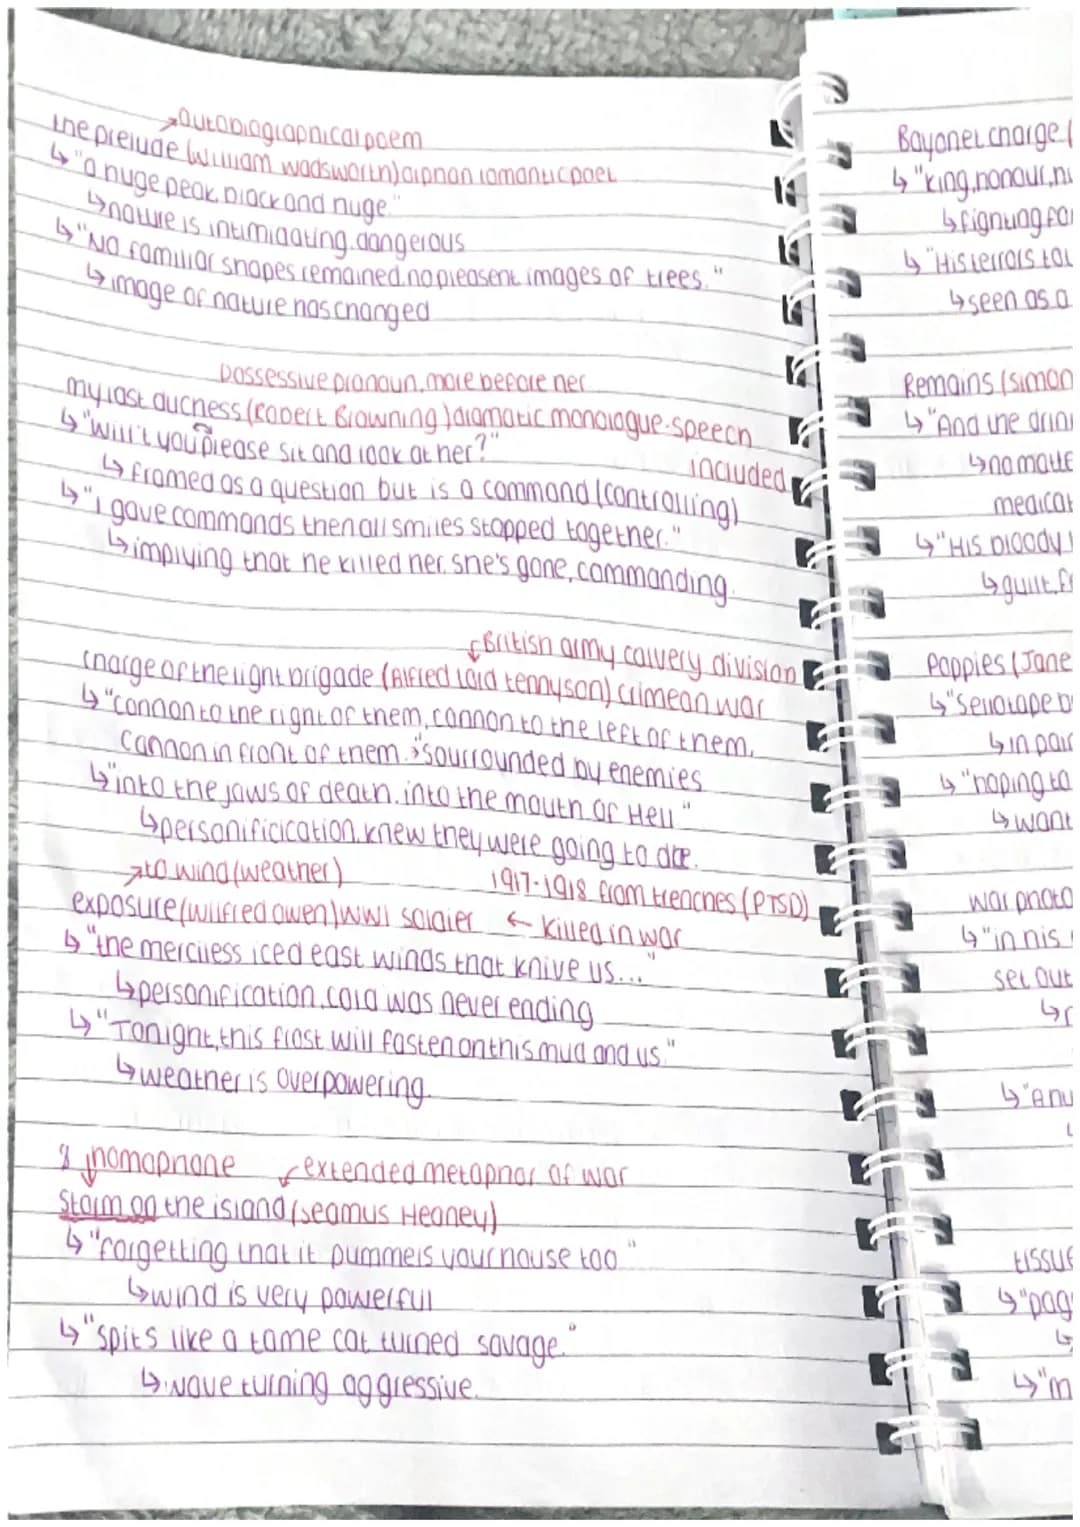 →autobiographical poem
the prelude (William wadsworth) orphan romantic poet
↳"a huge peak, black and huge."
↳nature is intimidating. dangerous
↳"No familiar shapes remained. no pleasent images of trees."
↳image of nature has changed
possessive pronoun, more before her
my last duchess (Robert Browning) dramatic monologue-speech
included
↳"Will't you please sit and look at her?"
↳framed as a question but is a command (controlling)
↳"I gave commands then all smiles stopped together."
↳implying that he killed her. she's gone, commanding.
British army calvery division
charge of the light brigade (Alfred lord tennyson) crimean war
↳"cannon to the right of them, cannon to the left of them,
cannon in front of them."→sourrounded by enemies
↳"into the jaws of death. into the mouth of Hell"
↳personificication. knew they were going to die.
→to wind (weather)
1917-1918 from trenches (PTSD)
exposure (wilfred owen) WW1 soldier ← killed in war
↳"the merciless iced east winds that knive us..."
↳personification. cold was never ending
↳"Tonight, this frost will fasten on this mud and us."
↳weather is overpowering.
homophone extended metaphor of war
Storm on the island (seamus Heaney)
↳"forgetting that it pummels your house too"
↳wind is very powerful
↳"spits like a tame cat turned savage."
↳wave turning aggressive.
Bayonet charge (
↳"king, honour, hu
↳fighting for
↳"His terrors tou
↳seen as a
Remains (simon
↳"And the drin
↳no matte
medicat
↳"His bloody
↳guilt. fr
Poppies (Jane
↳"sellotape b
↳in pair
↳"hoping to
↳want
war photo
↳"in his
set out
↳"
tissue
↳"pag
↳"m